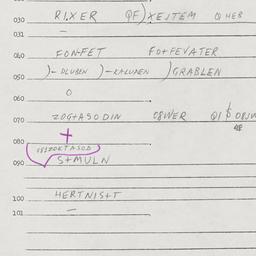 030 RIXER QF)XEJTEM Q HEB
031 —
040 FONFET FOTFEVATER
050 )-DLUBEN )-KALUPEN )GRABLEN
060 O
070 ZOGTASODIN OSWER
080 +
090 S+MULN
100 HERTNIS+T
101 —